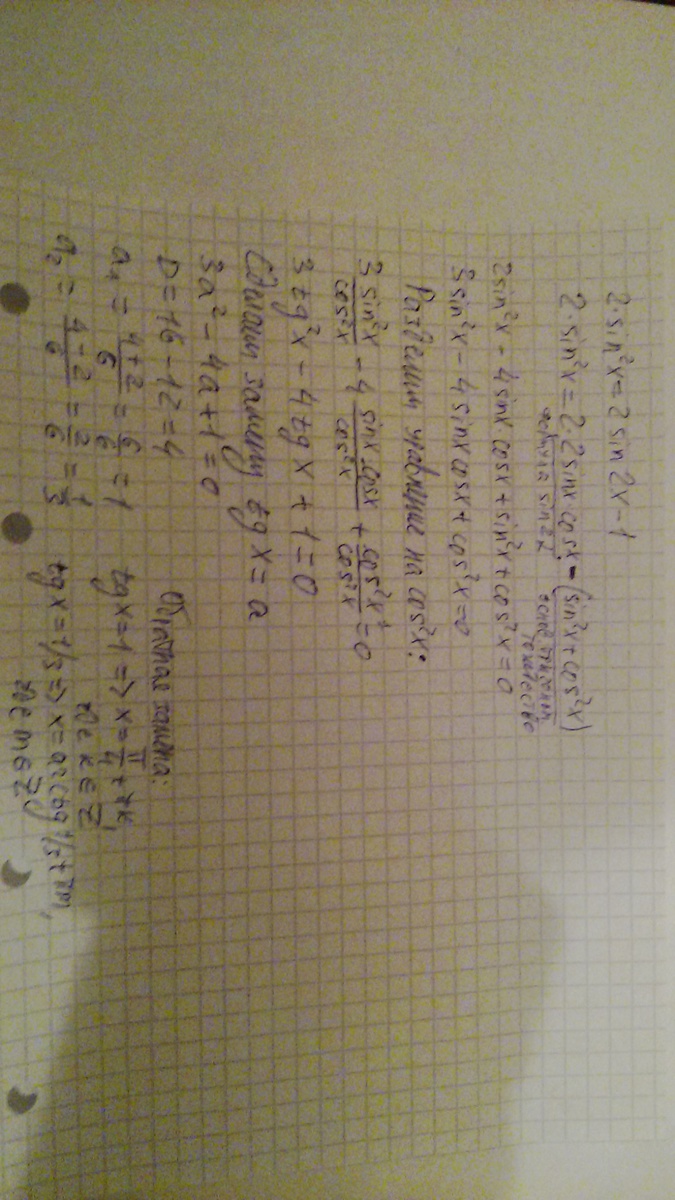 2·sin²x = 2 sin 2x - 1
2·sin²x = 2·2sinx cosx - (sin²x + cos²x)
формула sin 2x основ. тригоном. тождество
2sin²x - 4 sinx·cosx + sin²x + cos²x = 0
3sin²x - 4 sinx cosx + cos²x = 0
Разделим уравнение на cos²x:
3 sin²x/cos²x - 4 sinx cosx/cos²x + cos²x/cos²x = 0
3 tg²x - 4 tg x + 1 = 0
Сделаем замену tg x = a
3a² - 4a + 1 = 0
D = 16 - 12 = 4
a₁ = 4+2/6 = 6/6 = 1
a₂ = 4-2/6 = 2/6 = 1/3
Обратная замена:
tg x = 1 => x = π/4 + πk,
где k ∈ Z
tg x = 1/3 => x = arctg 1/3 + πm,
где m ∈ Z